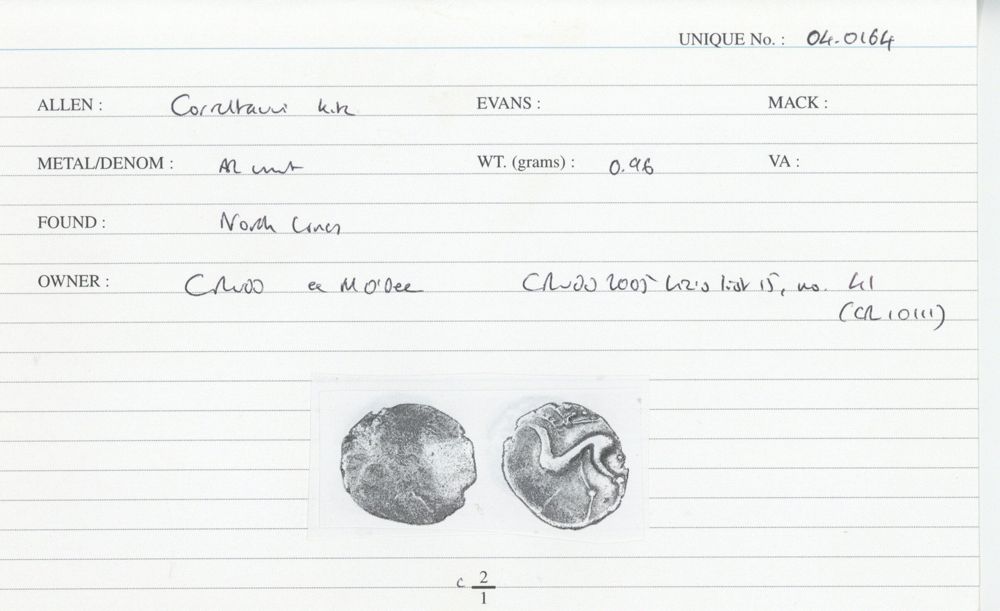 UNIQUE No. : 04.0164
ALLEN : Corieltauvi EVANS : MACK :
METAL/DENOM : AR unit WT. (grams) : 0.96 VA :
FOUND : North Lincs
OWNER : CR w00 ex M O'Bee CR w00 2005 Liz's list 15, no. 41
(CR 10111)
c 2
1